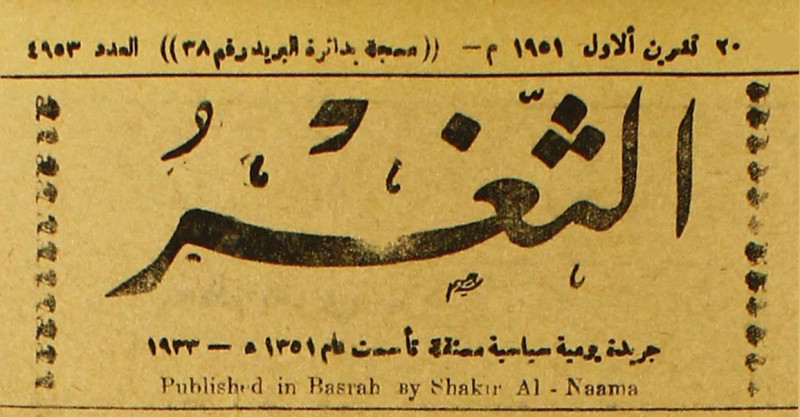 ٢٠ تشرين الاول ١٩٥١ م — ((مسجلة بدائرة البريد رقم ٣٨)) العدد ٤٩٥٣
الثَّغْرُ
جريدة يومية سياسية مستقلة تأسست عام ١٣٥١ ه — ١٩٣٣
Published in Basrah By Shakir Al - Naama